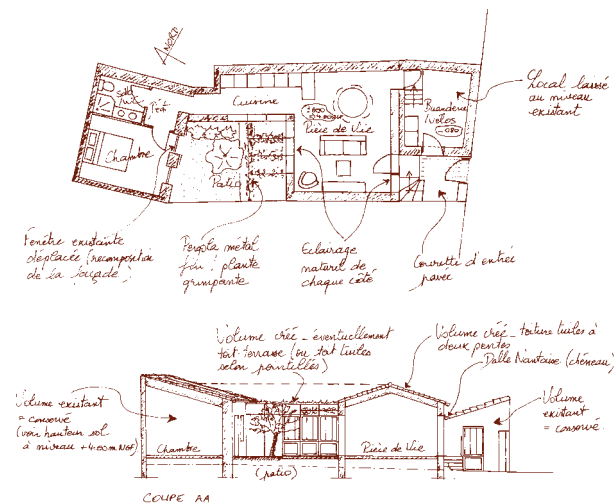 NORD
Cuisine
Pièce de Vie
Buanderie
Vélos
Chambre
Patio
Local laissé
au niveau
existant
Fenêtre existante
déplacée (recomposition
de la façade)
Pergola métal
fin : plante
grimpante
Eclairage
naturel de
chaque côté
Courette d'entrée
pavée
Volume créé - éventuellement
toit-terrasse (ou toit tuiles
selon pointillés)
Volume créé - toiture tuiles à
deux pentes
Dalle Nantaise (chéneau)
Volume existant
= conservé
(voir hauteur sol
à niveau + 4.00m NGF)
Volume
existant
= conservé.
Chambre
Pièce de Vie
(patio)
COUPE AA